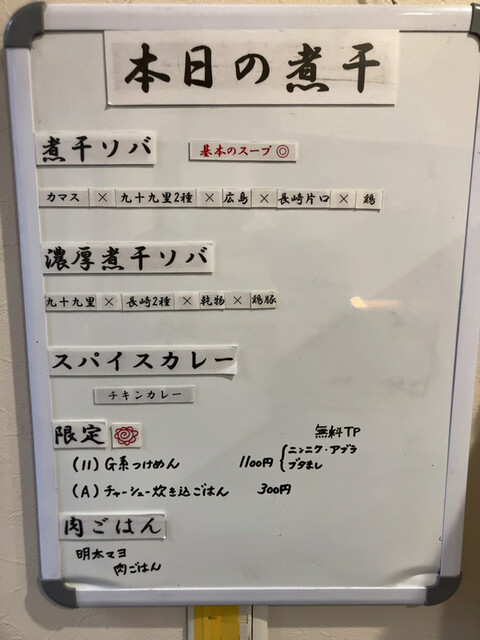 本日の煮干
煮干ソバ 基本のスープ◎
カマス × 九十九里2種 × 広島 × 長崎片口 × 鶏
濃厚煮干ソバ
九十九里 × 長崎2種 × 乾物 × 鶏豚
スパイスカレー
チキンカレー
限定 無料TP
(11) G系つけめん 1100円 { ニンニク・アブラ
ブタまし
(A) チャーシュー炊き込ごはん 300円
肉ごはん
明太マヨ
肉ごはん